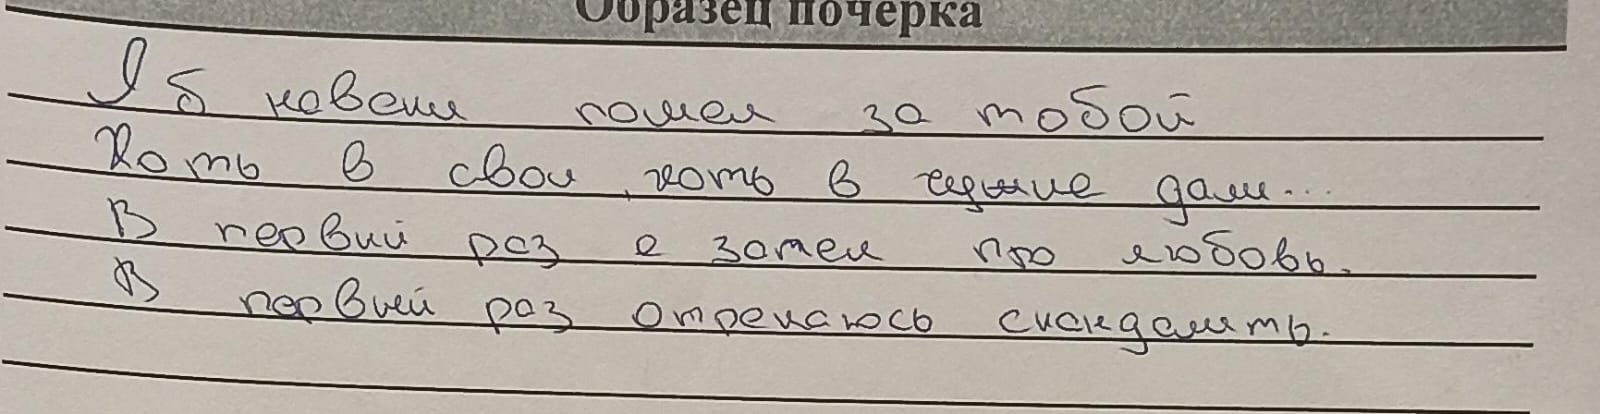 Образец почерка
Я б навеки пошел за тобой
Хоть в свои, хоть в чужие дали...
В первый раз я запел про любовь.
В первый раз отрекаюсь скандалить.